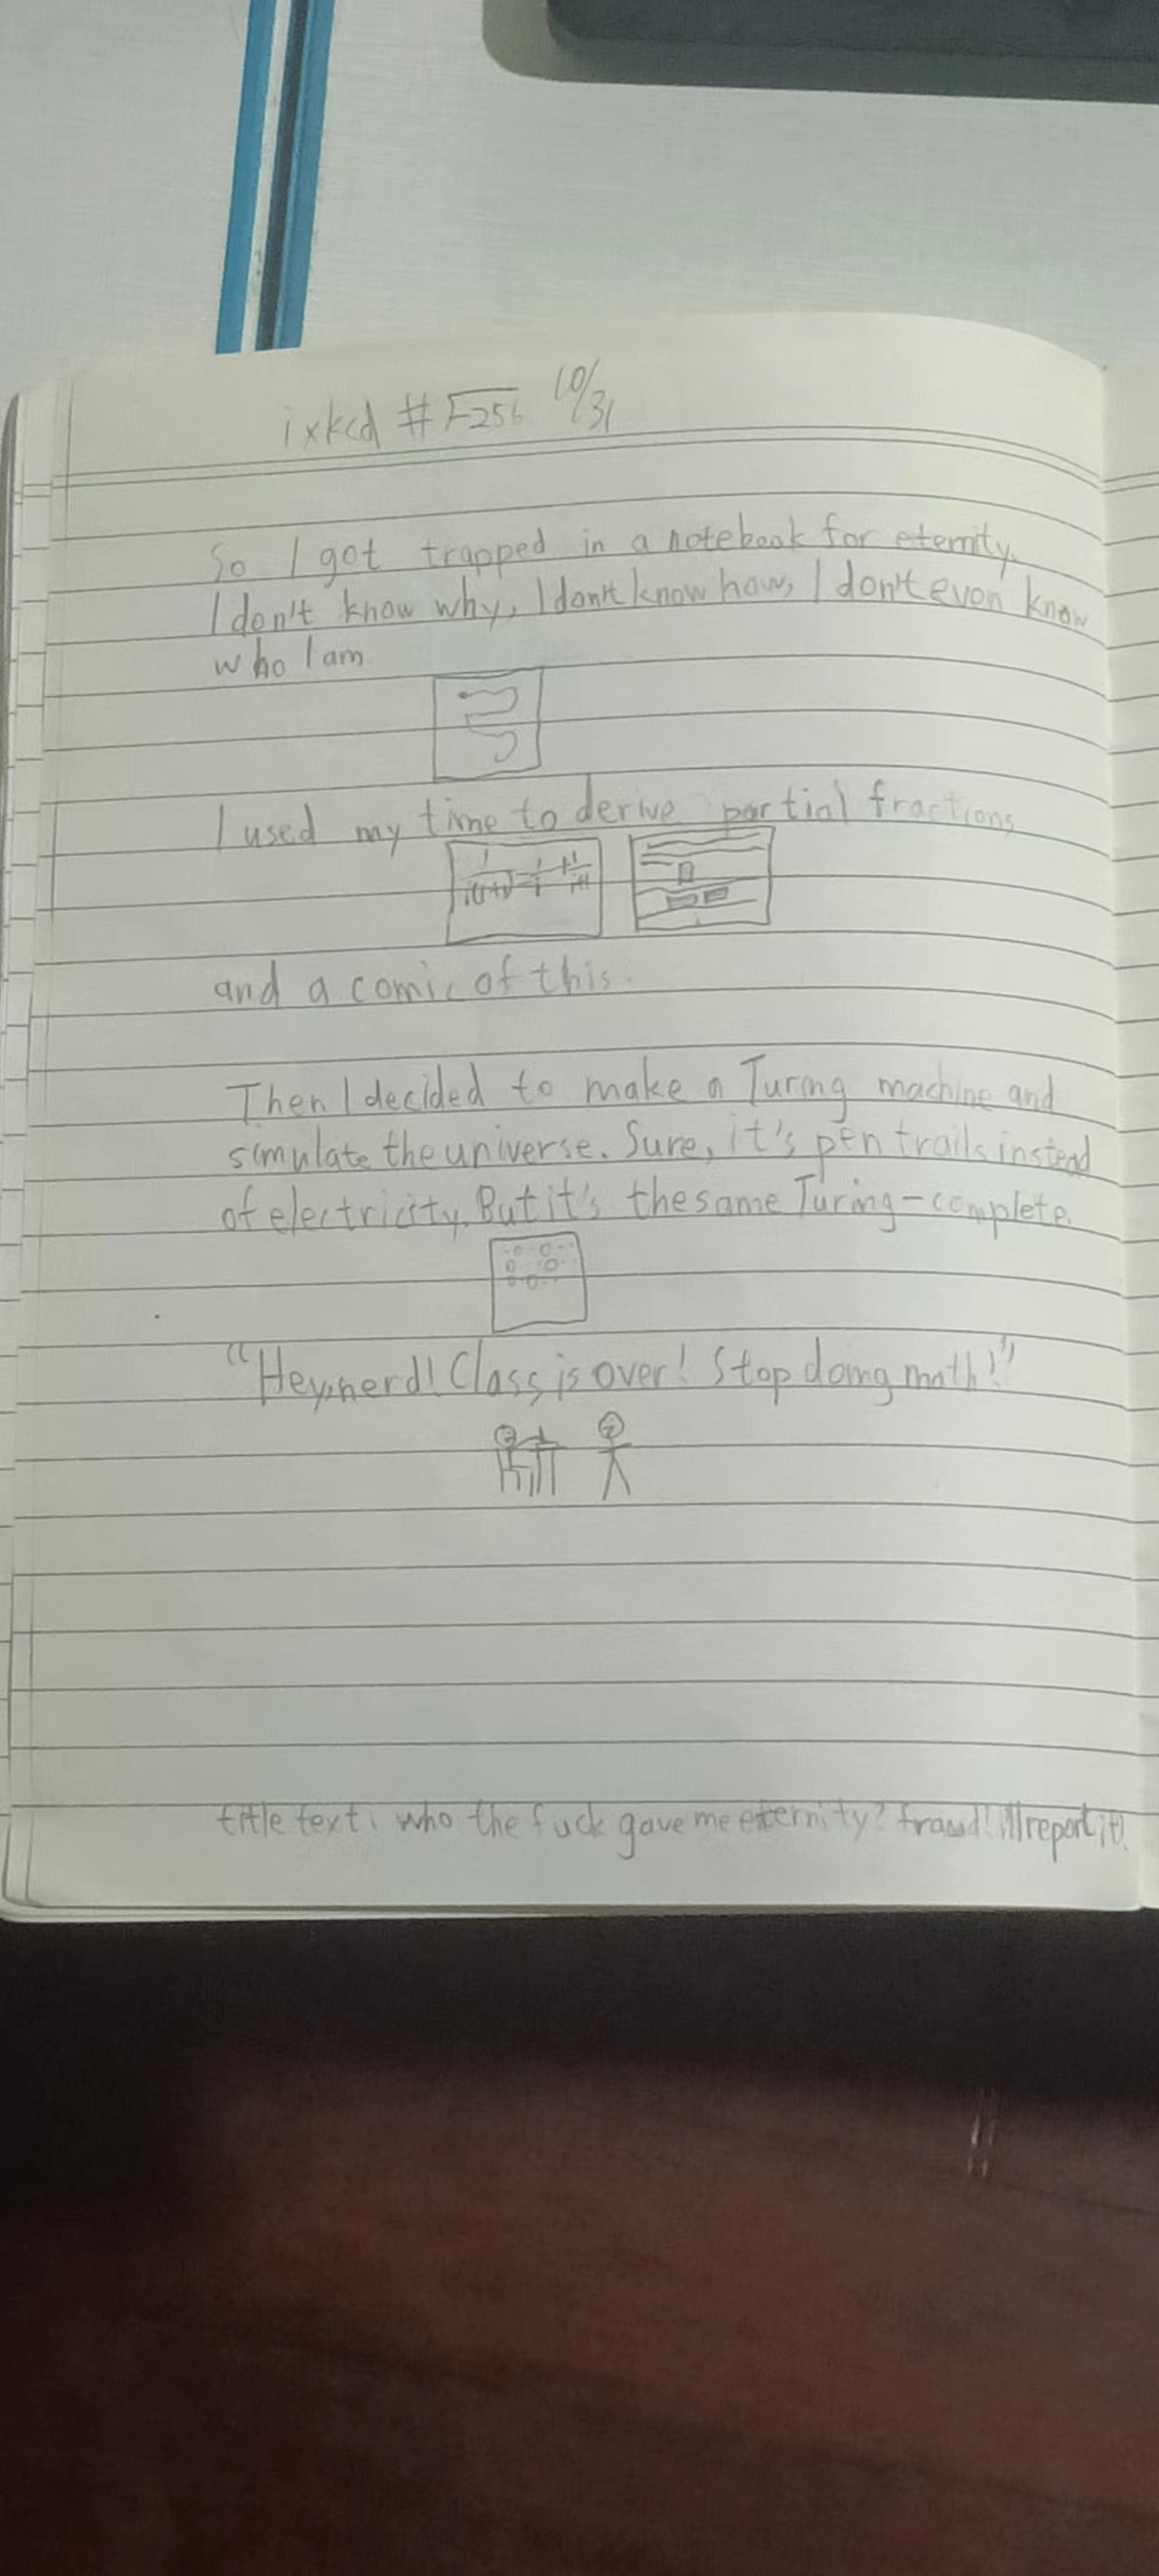 ixkcd #√-256 10/31
So I got trapped in a notebook for eternity.
I don't know why, I don't know how, I don't even know
who I am
I used my time to derive partial fractions
1/i(i+1) = 1/i + 1/i+1
and a comic of this.
Then I decided to make a Turing machine and
simulate the universe. Sure, it's pen trails instead
of electricity. But it's the same Turing-complete.
"Hey, nerd! Class is over! Stop doing math!"
title text: who the fuck gave me eternity? fraud! I'll report it!